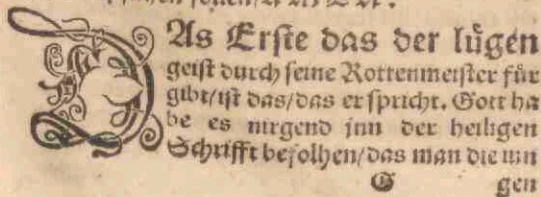 DAs Erste das der lügen
geist durch seine Rottenmeister für
gibt/ist das/das er spricht. Gott ha
be es nirgend jnn der heiligen
Schrifft befolhen/das man die iun
G gen